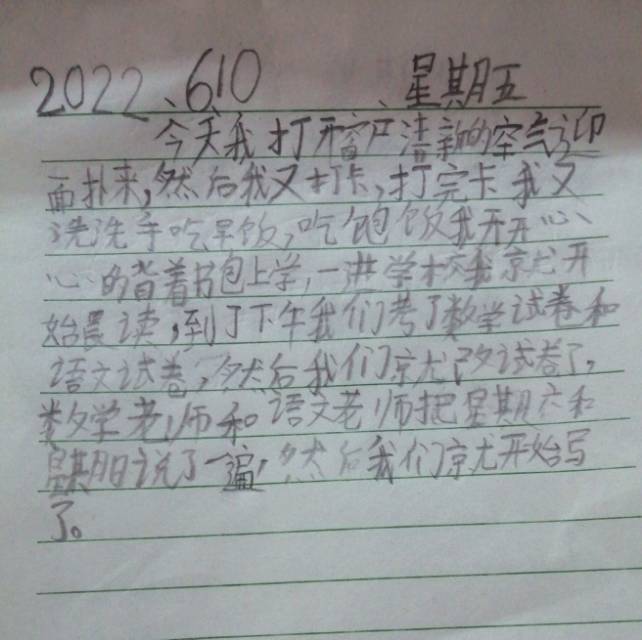 2022、6、10 星期五
今天我打开窗户清新的空气迎
面扑来,然后我又打卡,打完卡我又
洗洗手吃早饭,吃饱饭我开开心
心的背着书包上学,一进学校我就开
始晨读,到了下午我们考了数学试卷和
语文试卷,然后我们就改试卷了。
数学老师和语文老师把星期六和
星期日说了一遍,然后我们就开始写
了。